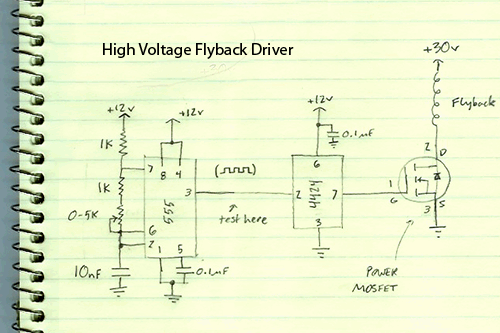 High Voltage Flyback Driver
+30v
+12v
+12v
+12v
Flyback
1K
0.1uF
7
8
4
6
2
D
1K
(
)
555
3
2
4424
7
1
G
0-5K
test here
3
S
6
2
1
5
3
10nF
0.1uF
POWER
MOSFET